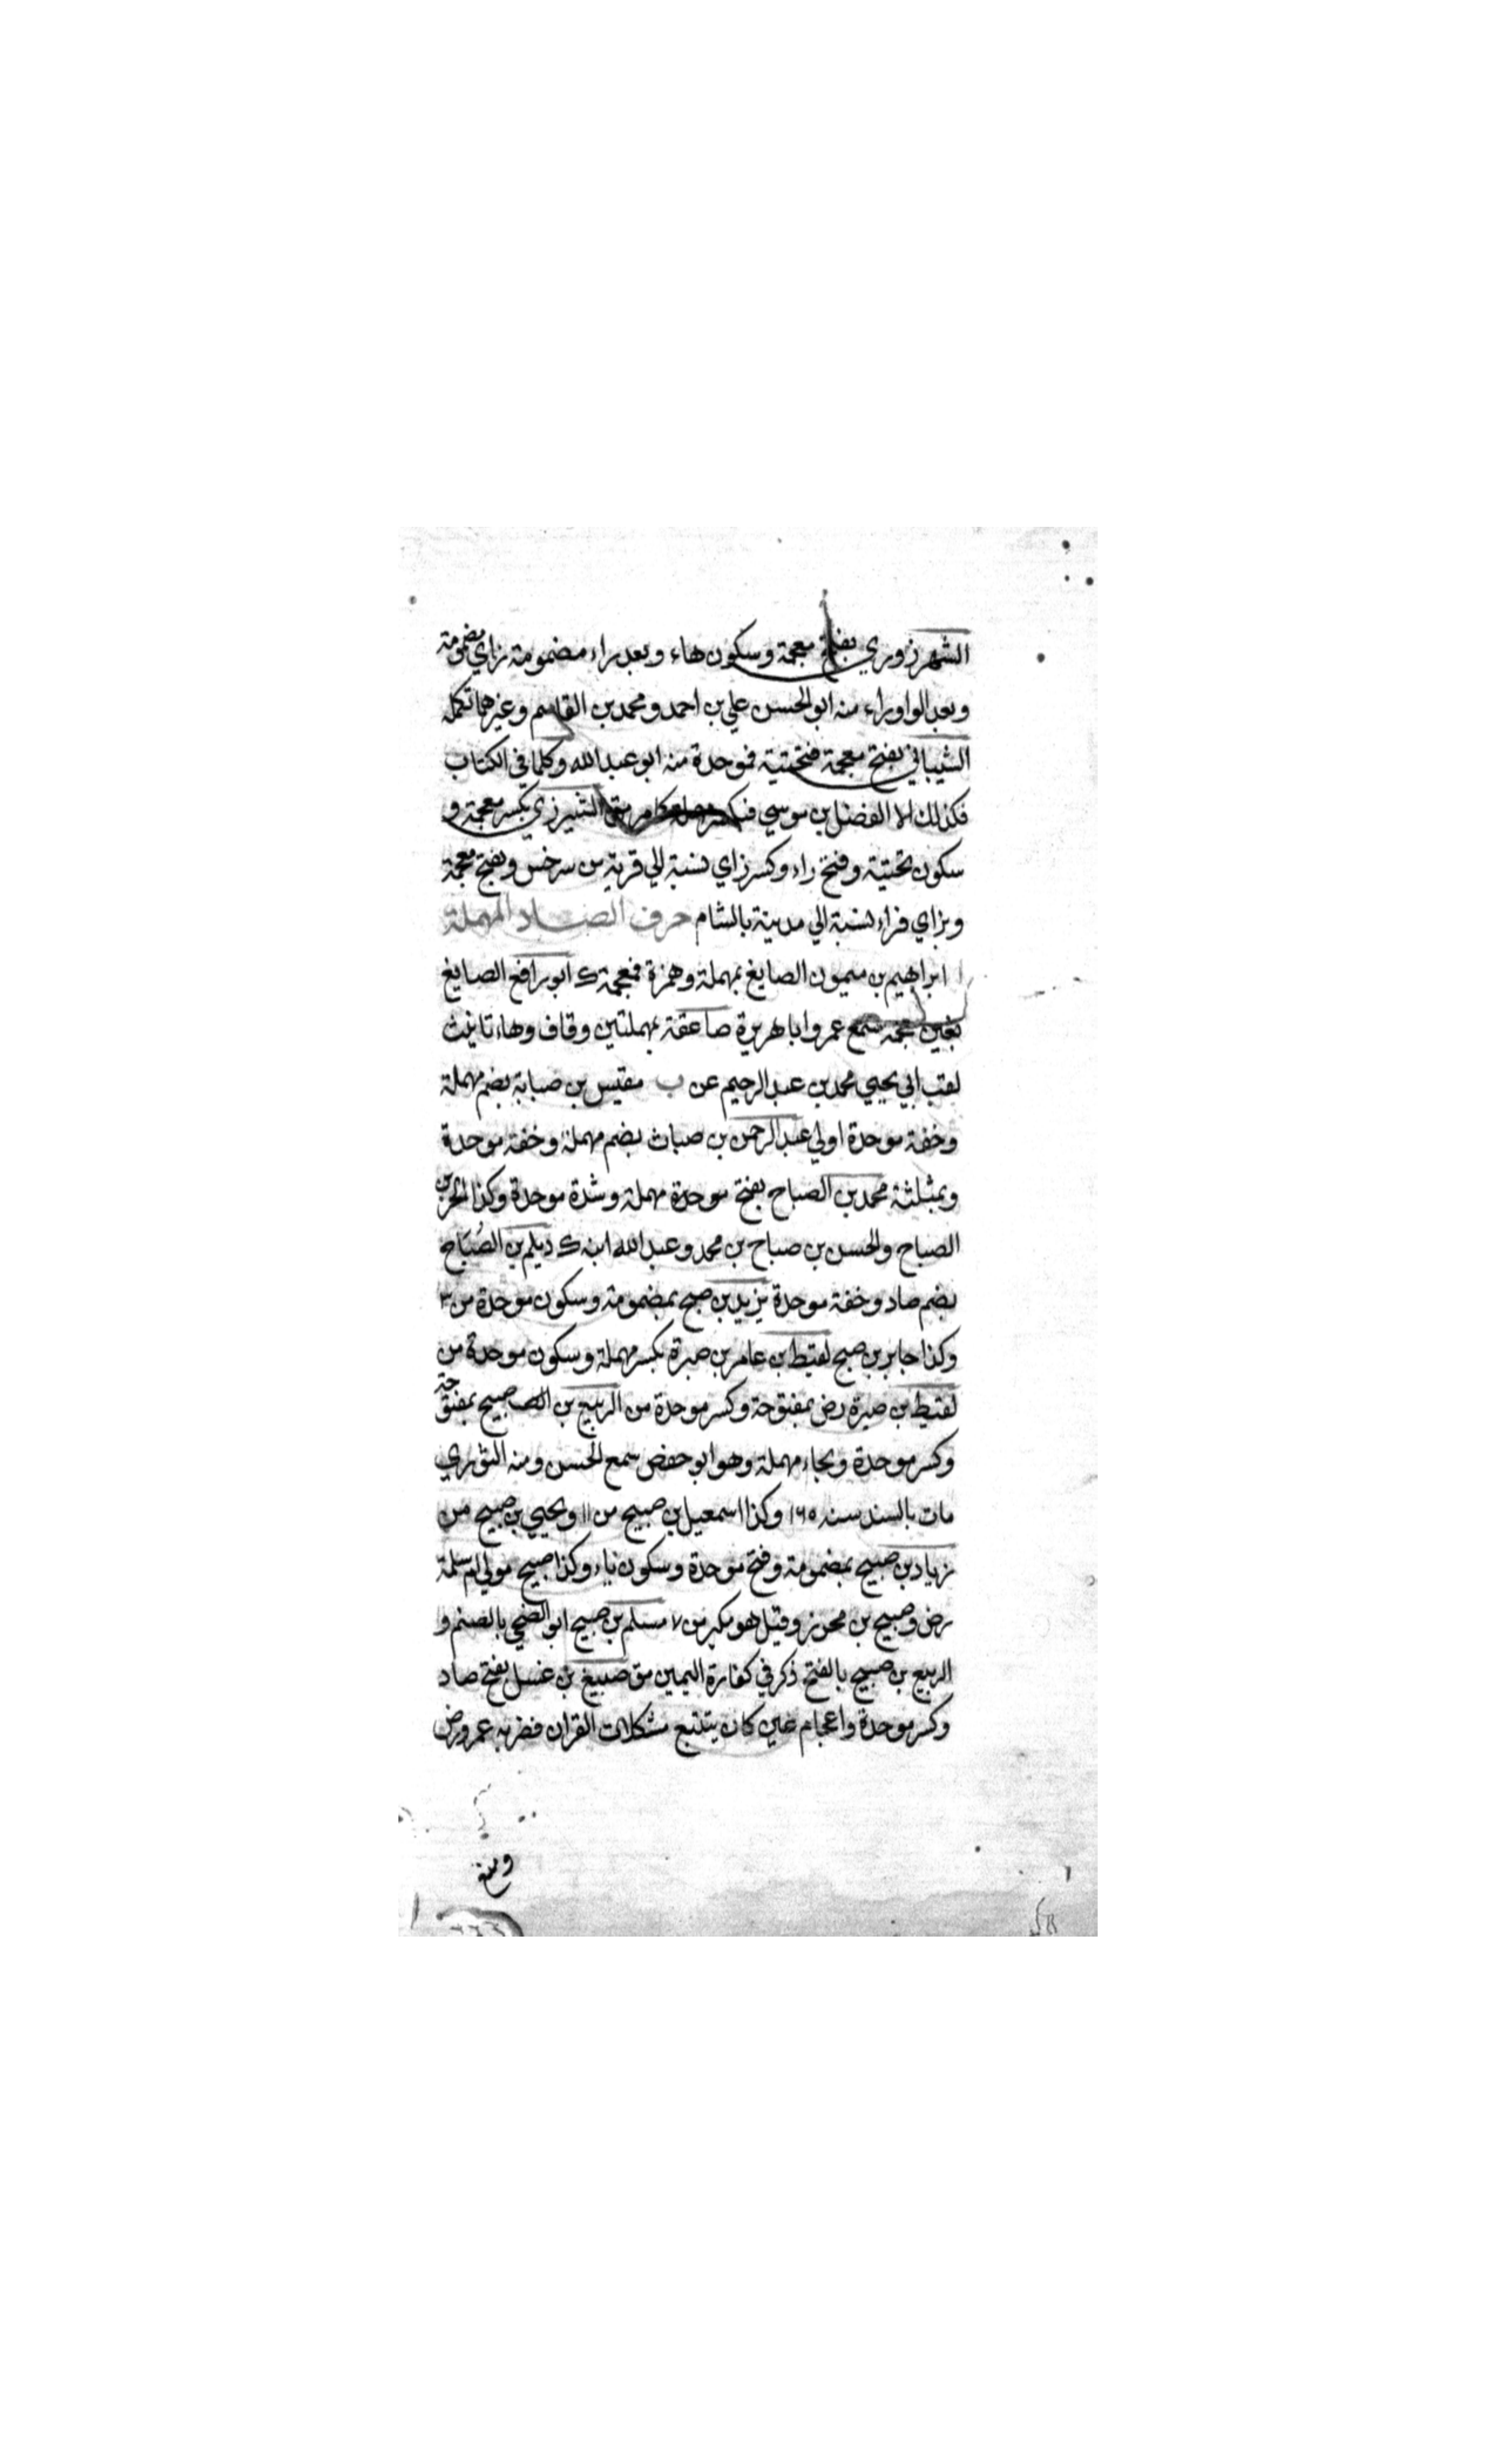 الشهرزوري بفتح معجمة وسكون هاء وبعد راء مضمومة زاي مضمومة
وبعد الواو راء منه ابو الحسن علي بن احمد ومحمد بن القاسم وغيرهما تكملة
الشيباني بفتح معجمة فتحتية فموحدة منه ابو عبد الله وكلما في الكتاب
فكذلك الا الفضل بن موسي الشيرزي بكسر معجمة و
سكون تحتية وفتح راء وكسر زاي نسبة الي قرية من سرخس وبفتح معجمة
وبزاي فراء نسبة الي مدينة بالشام حرف الصاد المهملة
ابراهيم بن ميمون الصايغ بمهملة وهمزة فمعجمة ك ابو رافع الصايغ
بغين معجمة سمع عمر وابا هريرة صاعقة بمهملتين وقاف وهاء تانيث
لقب ابي يحيي محمد بن عبد الرحيم عن ب مقيس بن صبابة بضم مهملة
وخفة موحدة اولي عبد الرحمن بن صباث بضم مهملة وخفة موحدة
وبمثلثة محمد بن الصباح بفتح موحدة مهملة وشدة موحدة وكذا الحر بن
الصباح والحسن بن صباح بن محمد وعبد الله ابنه ك ديلم بن الصُبَاح
بضم صاد وخفة موحدة يزيد بن صبح بمضمومة وسكون موحدة من ٣
وكذا جابر بن صبح لقيط بن عامر بن صبرة بكسر مهملة وسكون موحدة من
لقيط بن صبرة رض بمفتوحة وكسر موحدة من الربيع بن الصبيح بمفتوحة
وكسر موحدة وبحاء مهملة وهو ابو حفص سمع الحسن ومنه الثوري
مات بالسند سنه ١٦٥ وكذا اسمعيل بن صبيح من ١١ ويحيي بن صبيح من
زياد بن صبيح بمضمومة وفتح موحدة وسكون ياء وكذا صبيح مولي ام سلمة
رض وصبيح بن محرز وقيل هو مكبر من ٧ مسلم بن صبيح ابو الضحي بالضم و
الربيع بن صبيح بالفتح ذكر في كفارة اليمين مق صبيغ بن عسل بفتح صاد
وكسر موحدة واعجام غين كان يتتبع مشكلات القران فضربه عمر رض